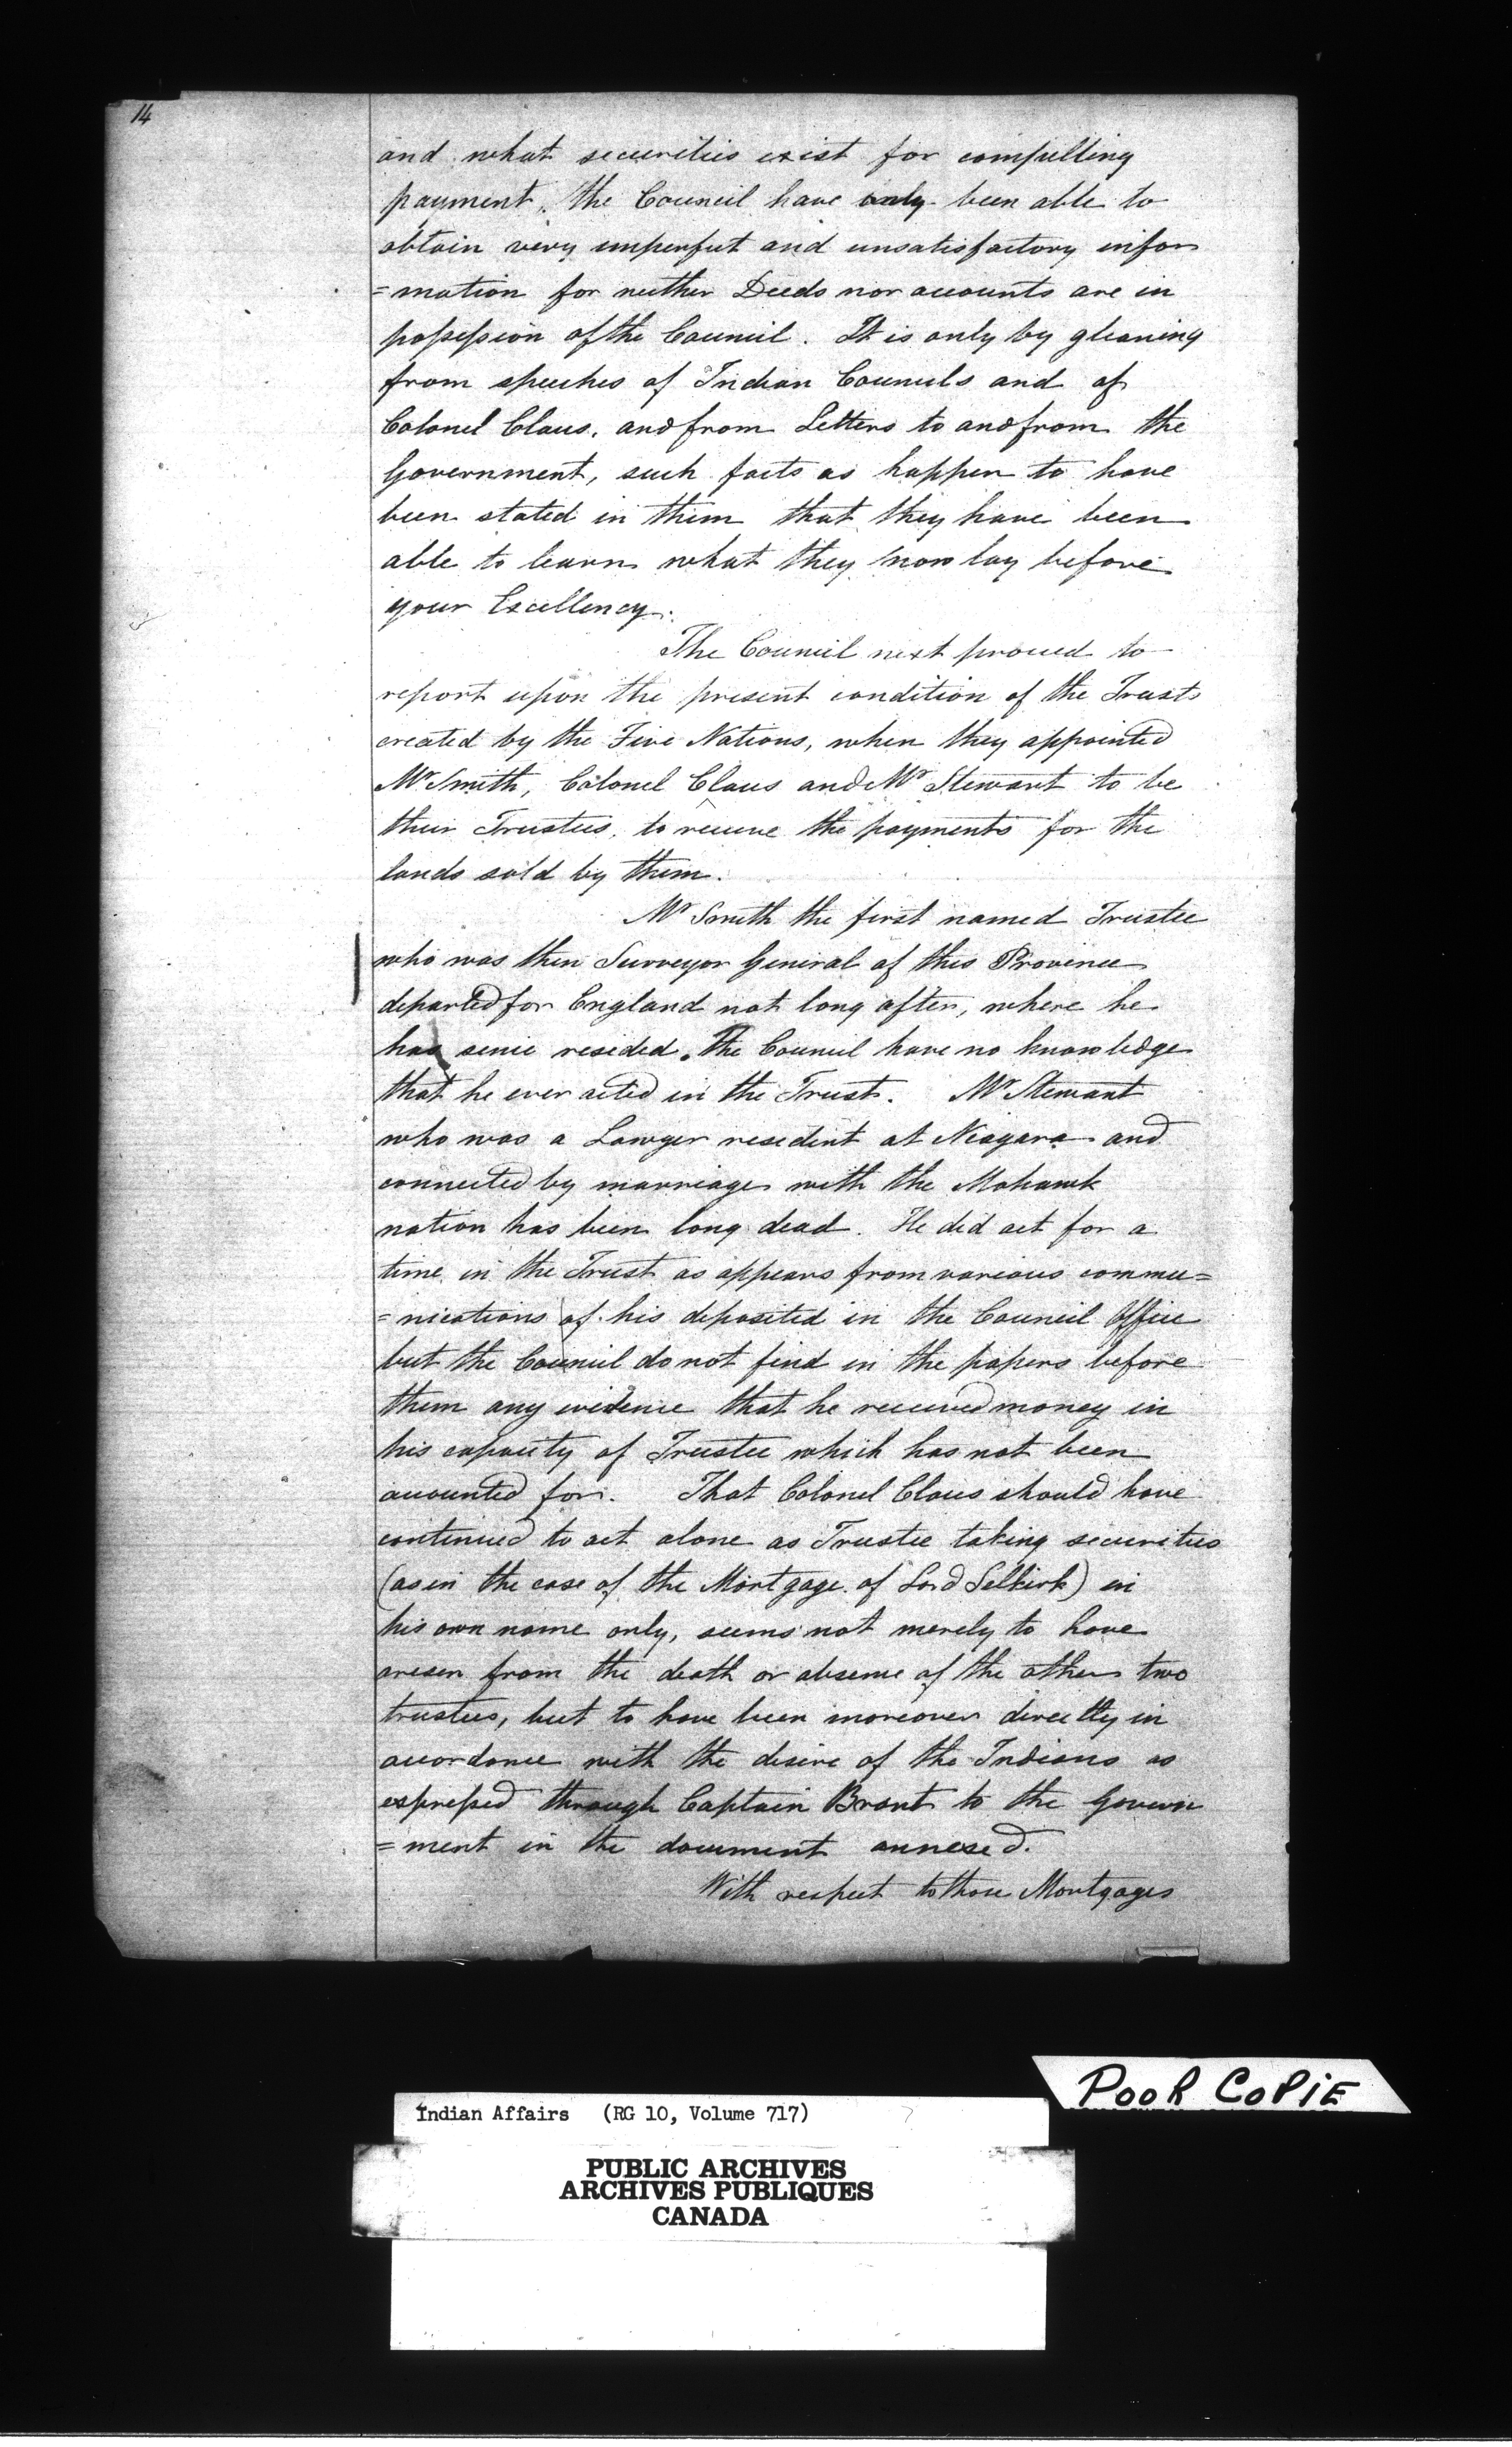 14
and what securities exist for compelling
payment, the Council have only been able to
obtain very imperfect and unsatisfactory infor
=mation for neither Deeds nor accounts are in
possession of the Council. It is only by gleaning
from speeches of Indian Councils and of
Colonel Claus, and from Letters to and from the
Government, such facts as happen to have
been stated in them that they have been
able to learn what they now lay before
your Excellency.
The Council next proceed to
report upon the present condition of the Trusts
created by the Five Nations, when they appointed
Mr Smith, Colonel Claus and Mr Stewart to be
their Trustees, to receive the payments for the
lands sold by them.
Mr Smith the first named Trustee
who was then Surveyor General of this Province
departed for England not long after, where he
has since resided. The Council have no knowledge
that he ever acted in the Trust. Mr Stewart
who was a Lawyer resident at Niagara and
connected by marriage with the Mohawk
nation has been long dead. He did act for a
time in the Trust as appears from various commu=
=nications of his deposited in the Council Office
but the Council do not find in the papers before
them any evidence that he received money in
his capacity of Trustee which has not been
accounted for. That Colonel Claus should have
continued to act alone as Trustee taking securities
(as in the case of the Mortgage of Lord Selkirk) in
his own name only, seems not merely to have
arisen from the death or absence of the other two
trustees, but to have been moreover directly in
accordance with the desire of the Indians as
expressed through Captain Brant to the Govern
=ment in the document annexed.
With respect to those Mortgages
POOR COPIE
Indian Affairs (RG 10, Volume 717)
PUBLIC ARCHIVES
ARCHIVES PUBLIQUES
CANADA